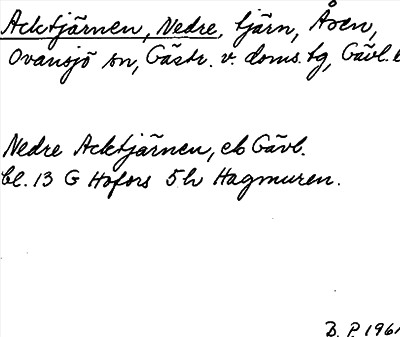 Acktjärnen, Nedre, tjärn, Åsen,
Ovansjö sn, Gästr. v. doms. tg, Gävl. l
Nedre Acktjärnen, ek Gävl.
bl. 13 G Hofors 5h Hagmuren.
B. P. 1961